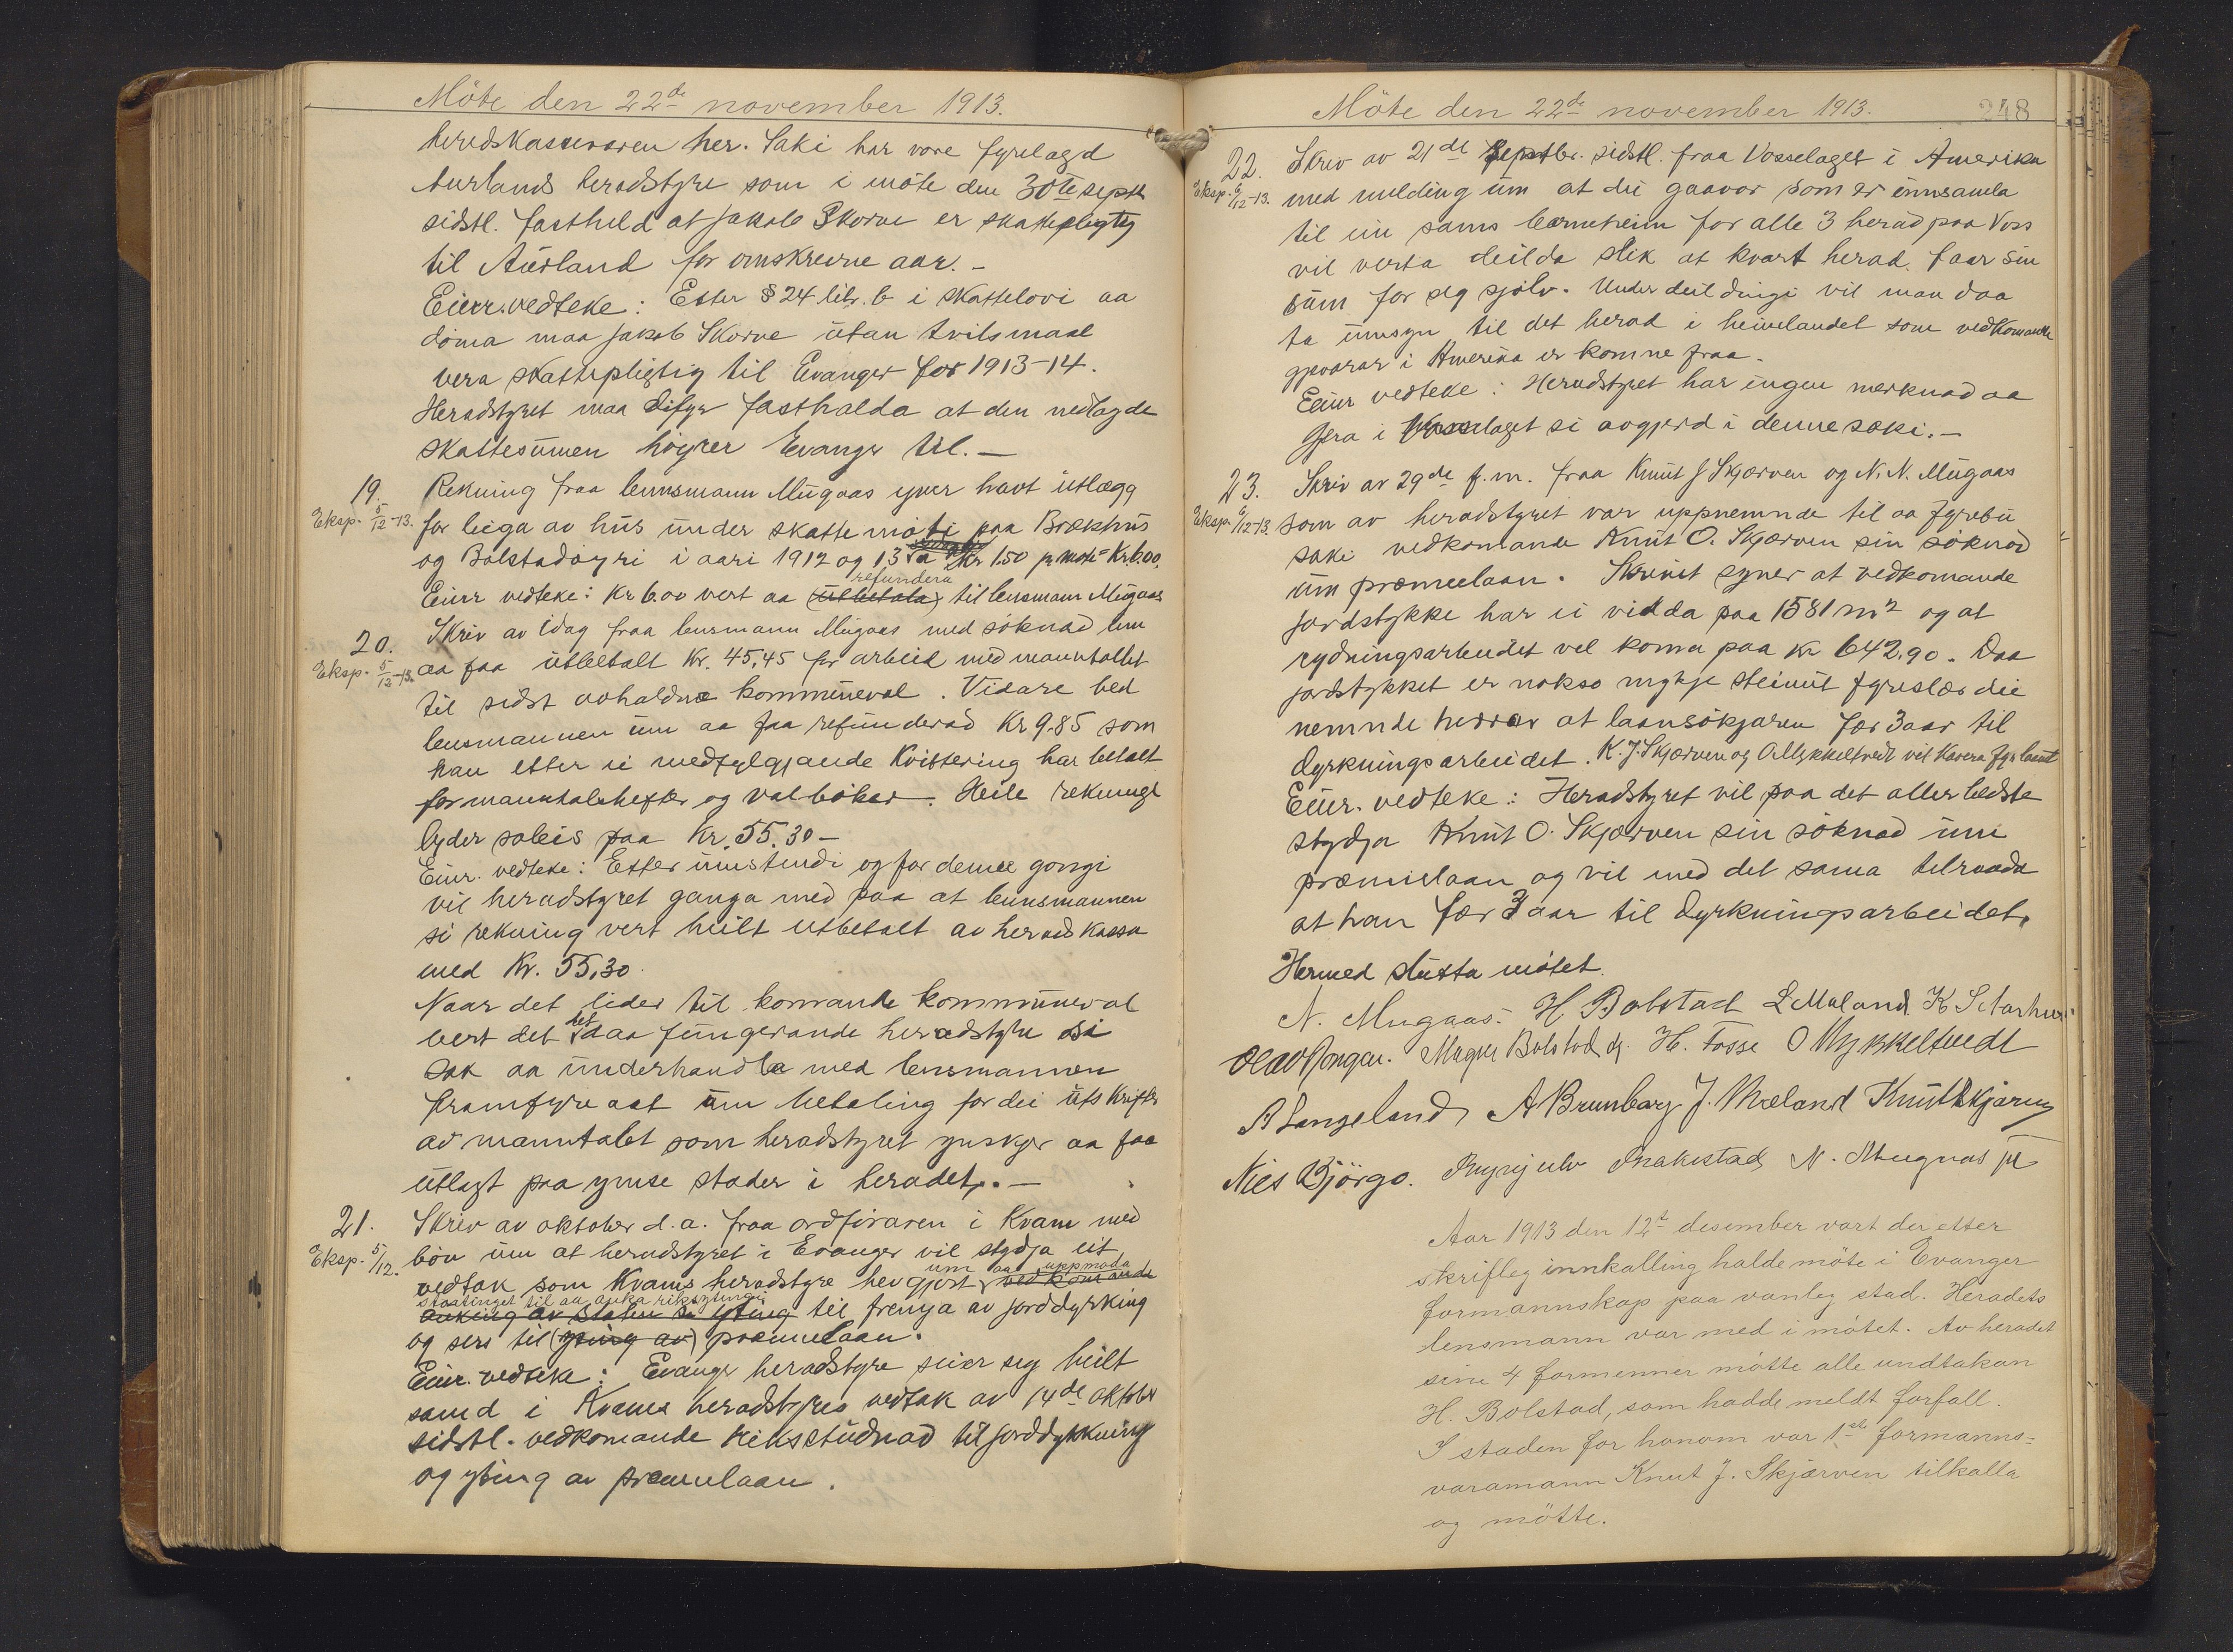 Möte den 22de november 1913.
heredskasseraren her. Saki har vore fyrelagd
Aurlands heradstyre som i möte den 30te septbr
sidstl. fastheld at Jakob Skorve er skattepligtig
til Aurland for omskrevne aar. -
Einr. vedteke: Etter § 24 litr. b i skattelovi aa
döma maa Jakob Skorve utan tvilsmaal
vera skattepligtig til Evanger for 1913-14.
Heradstyret maa difyr fasthalda at den nedlagde
skattesumen höyrer Evanger til. -
19. Rekning fraa lensmann Mugaas yver havt utlægg
Eksp. 5/12-13. for leiga av hus under skattemöti paa Brækhus
og Bolstadöyri i aari 1912 og 13 a Kr 1.50 pr. möte = Kr 6.00.
refundera
Einr vedteke: Kr 6.00 vert aa (utbetala) til lensmann Mugaas
20. Skriv av idag fraa lensmann Mugaas med söknad um
Eksp. 5/12-13. aa faa utbetalt Kr. 45,45 for arbeid med manntallet
til sidst avhaldne kommuneval. Vidare bed
lensmannen um aa faa refunderad Kr 9.85 som
han etter ei medfylgjande kvittering har betalt
for manntalshefter og valböker. Heile rekningi
lyder soleis paa Kr. 55.30 -
Einr. vedteke: Etter umstendi og for denne gongi
vil heradstyret ganga med paa at lensmannen
si rekning vert heilt utbetalt av heradskassa
med Kr. 55,30
Naar det lider til komande kommuneval
vert det daa fungerande heradstyre si
sak aa underhandla med lensmannen
framfyre aat um betaling for dei utskrifter
av manntalet som heradstyret ynskjer aa faa
utlagt paa ymse stader i heradet. -
21. Skriv av oktober d.a. fraa ordföraren i Kvam med
Eksp. 5/12. bön um at heradstyret i Evanger vil stydja eit
um aa uppmoda
vedtak som Kvams heradstyre hev gjort vedkomande
statinget til aa auka rikets ytingi
auking av staten si yting til fremja av jorddyrking
og sers til (yting av) præmielaan.
Einr. vedteke: Evanger heradstyre seier seg heilt
samd i Kvams heradstyres vedtak av 14de oktober
sidstl. vedkomande riksstudnad til jorddyrkning
og yting av præmielaan.
Möte den 22de november 1913. 248
22. Skriv av 21de septbr. sidstl. fraa Vosselaget i Amerika
Eksp. 6/12-13. med melding um at dei gaavor som er innsamla
til ein sams barneheim for alle 3 herad paa Voss
vil verta deilda slik at kvart herad faar sin
sum for seg sjölv. Under deildingi vil man daa
ta umsyn til det herad i heimlandet som vedkomande
gjevarar i Amerika er komne fraa.
Einr vedteke: Heradstyret har ingen merknad aa
gjera i Vosselaget si avgjerd i denne saki. -
23. Skriv av 29de f.m. fraa Knut J Skjerven og N. N. Mugaas
Eksp. 6/12-13 som av heradstyret var uppnemnde til aa fyrebu
saki vedkomande Knut O. Skjerven sin söknad
um præmielaan. Skrivet syner at vedkomande
jordstykke har ei vidda paa 1581 m2 og at
rydningsarbeidet vel koma paa Kr 642,90. Daa
jordstykket er nokso mykje steinut fyreslær dei
nemnde herrar at laansökjaren fær 3 aar til
dyrkningsarbeidet. K. J. Skjerven og O Mykkeltvedt vil kavera fyr laanet
Einr. vedteke: Heradstyret vil paa det allerbedste
stydja Knut O. Skjerven sin söknad um
præmielaan og vil med det sama tilraada
at han fær 3 aar til dyrkningsarbeidet.
Hermed slutta mötet.
N. Mugaas. H. Bolstad L Mæland K S Aarhus
Olav Jongen. Magne Bolstad H. Fosse O Mykkeltvedt
B Langeland A Brunborg J. Mæland Knut Skjerven
Nils Björgo. Brynjulv N. Mugaas
Aar 1913 den 12te desember vart der etter
skriftleg innkalling halde möte i Evanger
formannskap paa vanleg stad. Heradets
lensmann var med i mötet. Av heradet
sine 4 formenner mötte alle undtakan
H. Bolstad, som hadde meldt forfall.
I staden for honom var 1ste formanns=
varamann Knut J. Skjærven tilkalla
og mötte.